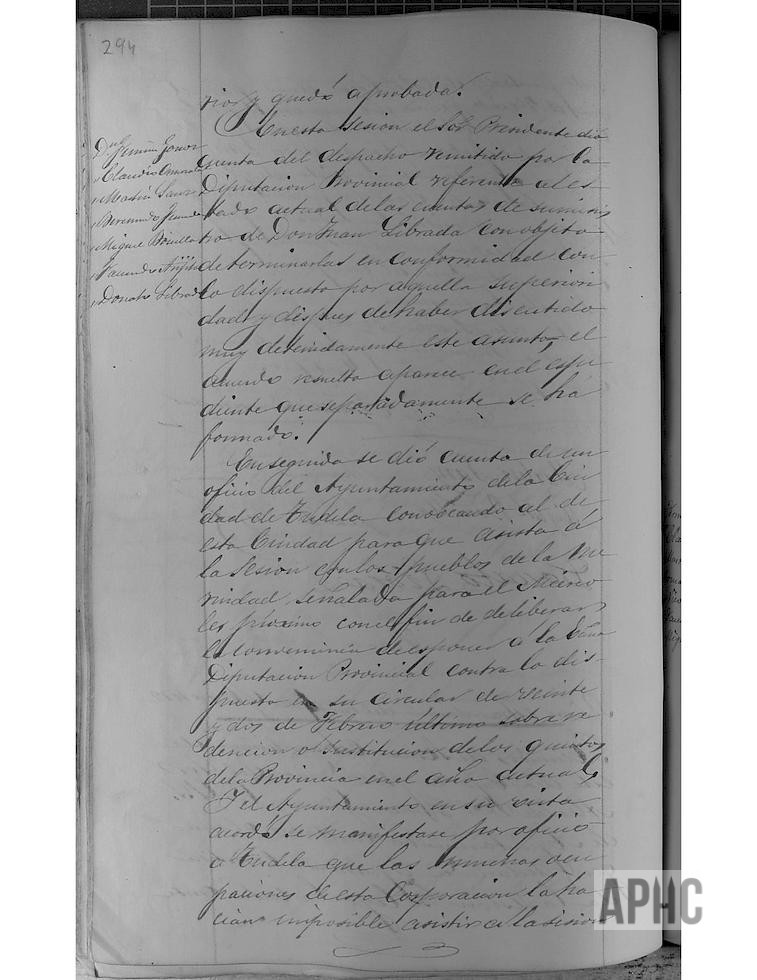 294
rior y quedó aprobada.
En esta sesion el Sor Presidente dió
cuenta del despacho remitido por la
Diputacion Provincial referente al es-
tado actual de las cuentas de suminis
tro de Don Juan Librada con objeto
determinarlas en conformidad con
lo dispuesto por aquella superiori
dad, y despues de haber discutido
muy detenidamente este asunto, el
acuerdo resuelto aparece en el espe
diente que separadamente se ha
formado.
Dn Fermin Gomez
" Claudio
" Martin Sanz
" Beremundo
" Miguel Bonilla
" Facundo
" Donato Librada
Enseguida se dió cuenta de un
oficio del Ayuntamiento de la Ciu
dad de Tudela convocando al de
esta Ciudad para que asista á
la sesion con los pueblos de la Me
rindad, señalada para el Mierco
les próximo con el fin de deliberar
la conveniencia de esponer á la Exma
Diputacion Provincial contra lo dis-
puesto en su circular de veinte
y dos de Febrero último sobre re
dencion o sustitucion de los quintos
de la Provincia en el año actual,
Y el Ayuntamiento en su vista
acordó se manifestase por oficio
a Tudela que las muchas ocu
paciones de esta Corporacion la ha
cian imposible asistir a la sesion
APHC